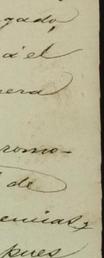 gado,
a el
nera
romo-
de
encias, y
pues